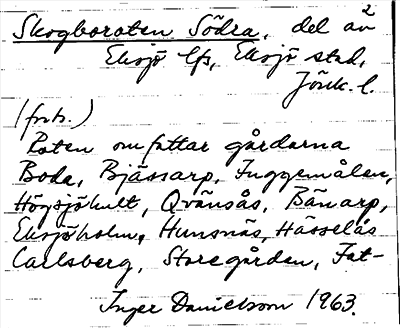 Skogboroten Södra, del av 2
Eksjö lfs, Eksjö stad,
Jönk. l.
(forts.)
Roten omfattar gårdarna
Boda, Bjässarp, Fuggemålen,
Högsjöhult, Qvänsås, Bänarp,
Eksjöholm, Hunsnäs, Hässelås
Carlsberg, Storegården, Fat-
Inger Danielson 1963.